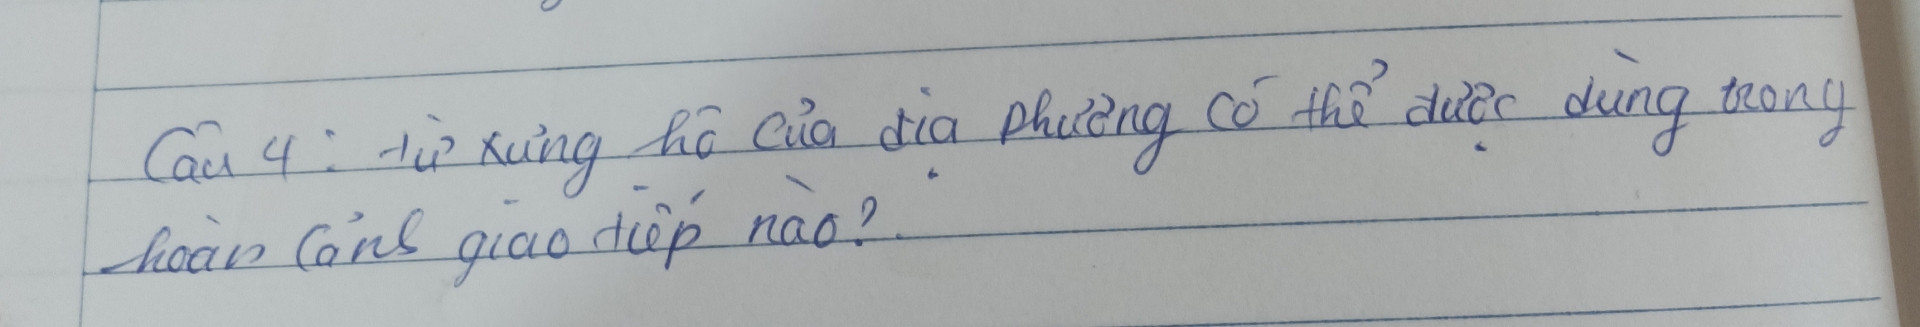 Câu 4: từ xưng hô của địa phương có thể được dùng trong
hoàn cảnh giao tiếp nào?